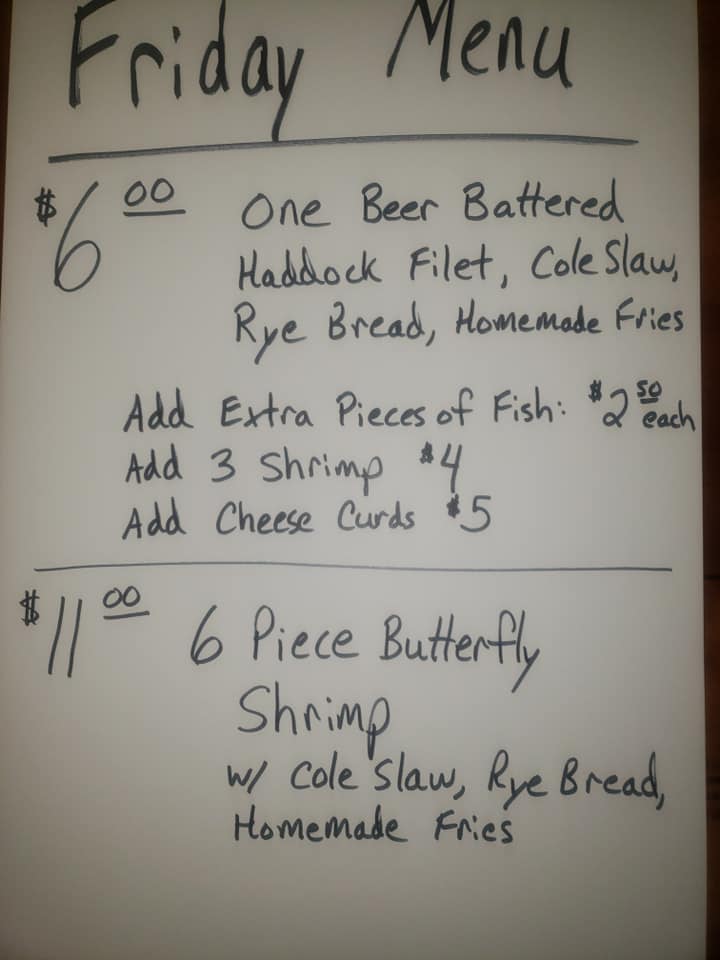 Friday Menu
$6 00 One Beer Battered
Haddock Filet, Cole Slaw,
Rye Bread, Homemade Fries
Add Extra Pieces of Fish: $2 50 each
Add 3 Shrimp $4
Add Cheese Curds $5
$11 00 6 Piece Butterfly
Shrimp
w/ Cole Slaw, Rye Bread,
Homemade Fries